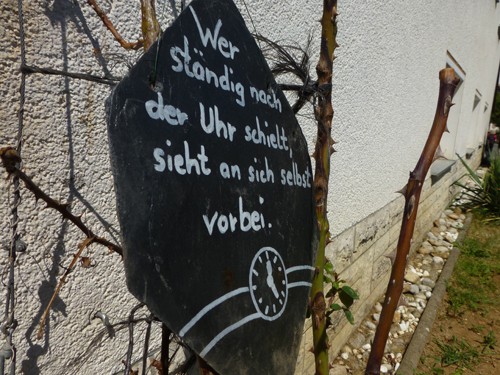 Wer
ständig nach
der Uhr schielt,
sieht an sich selbst
vorbei.